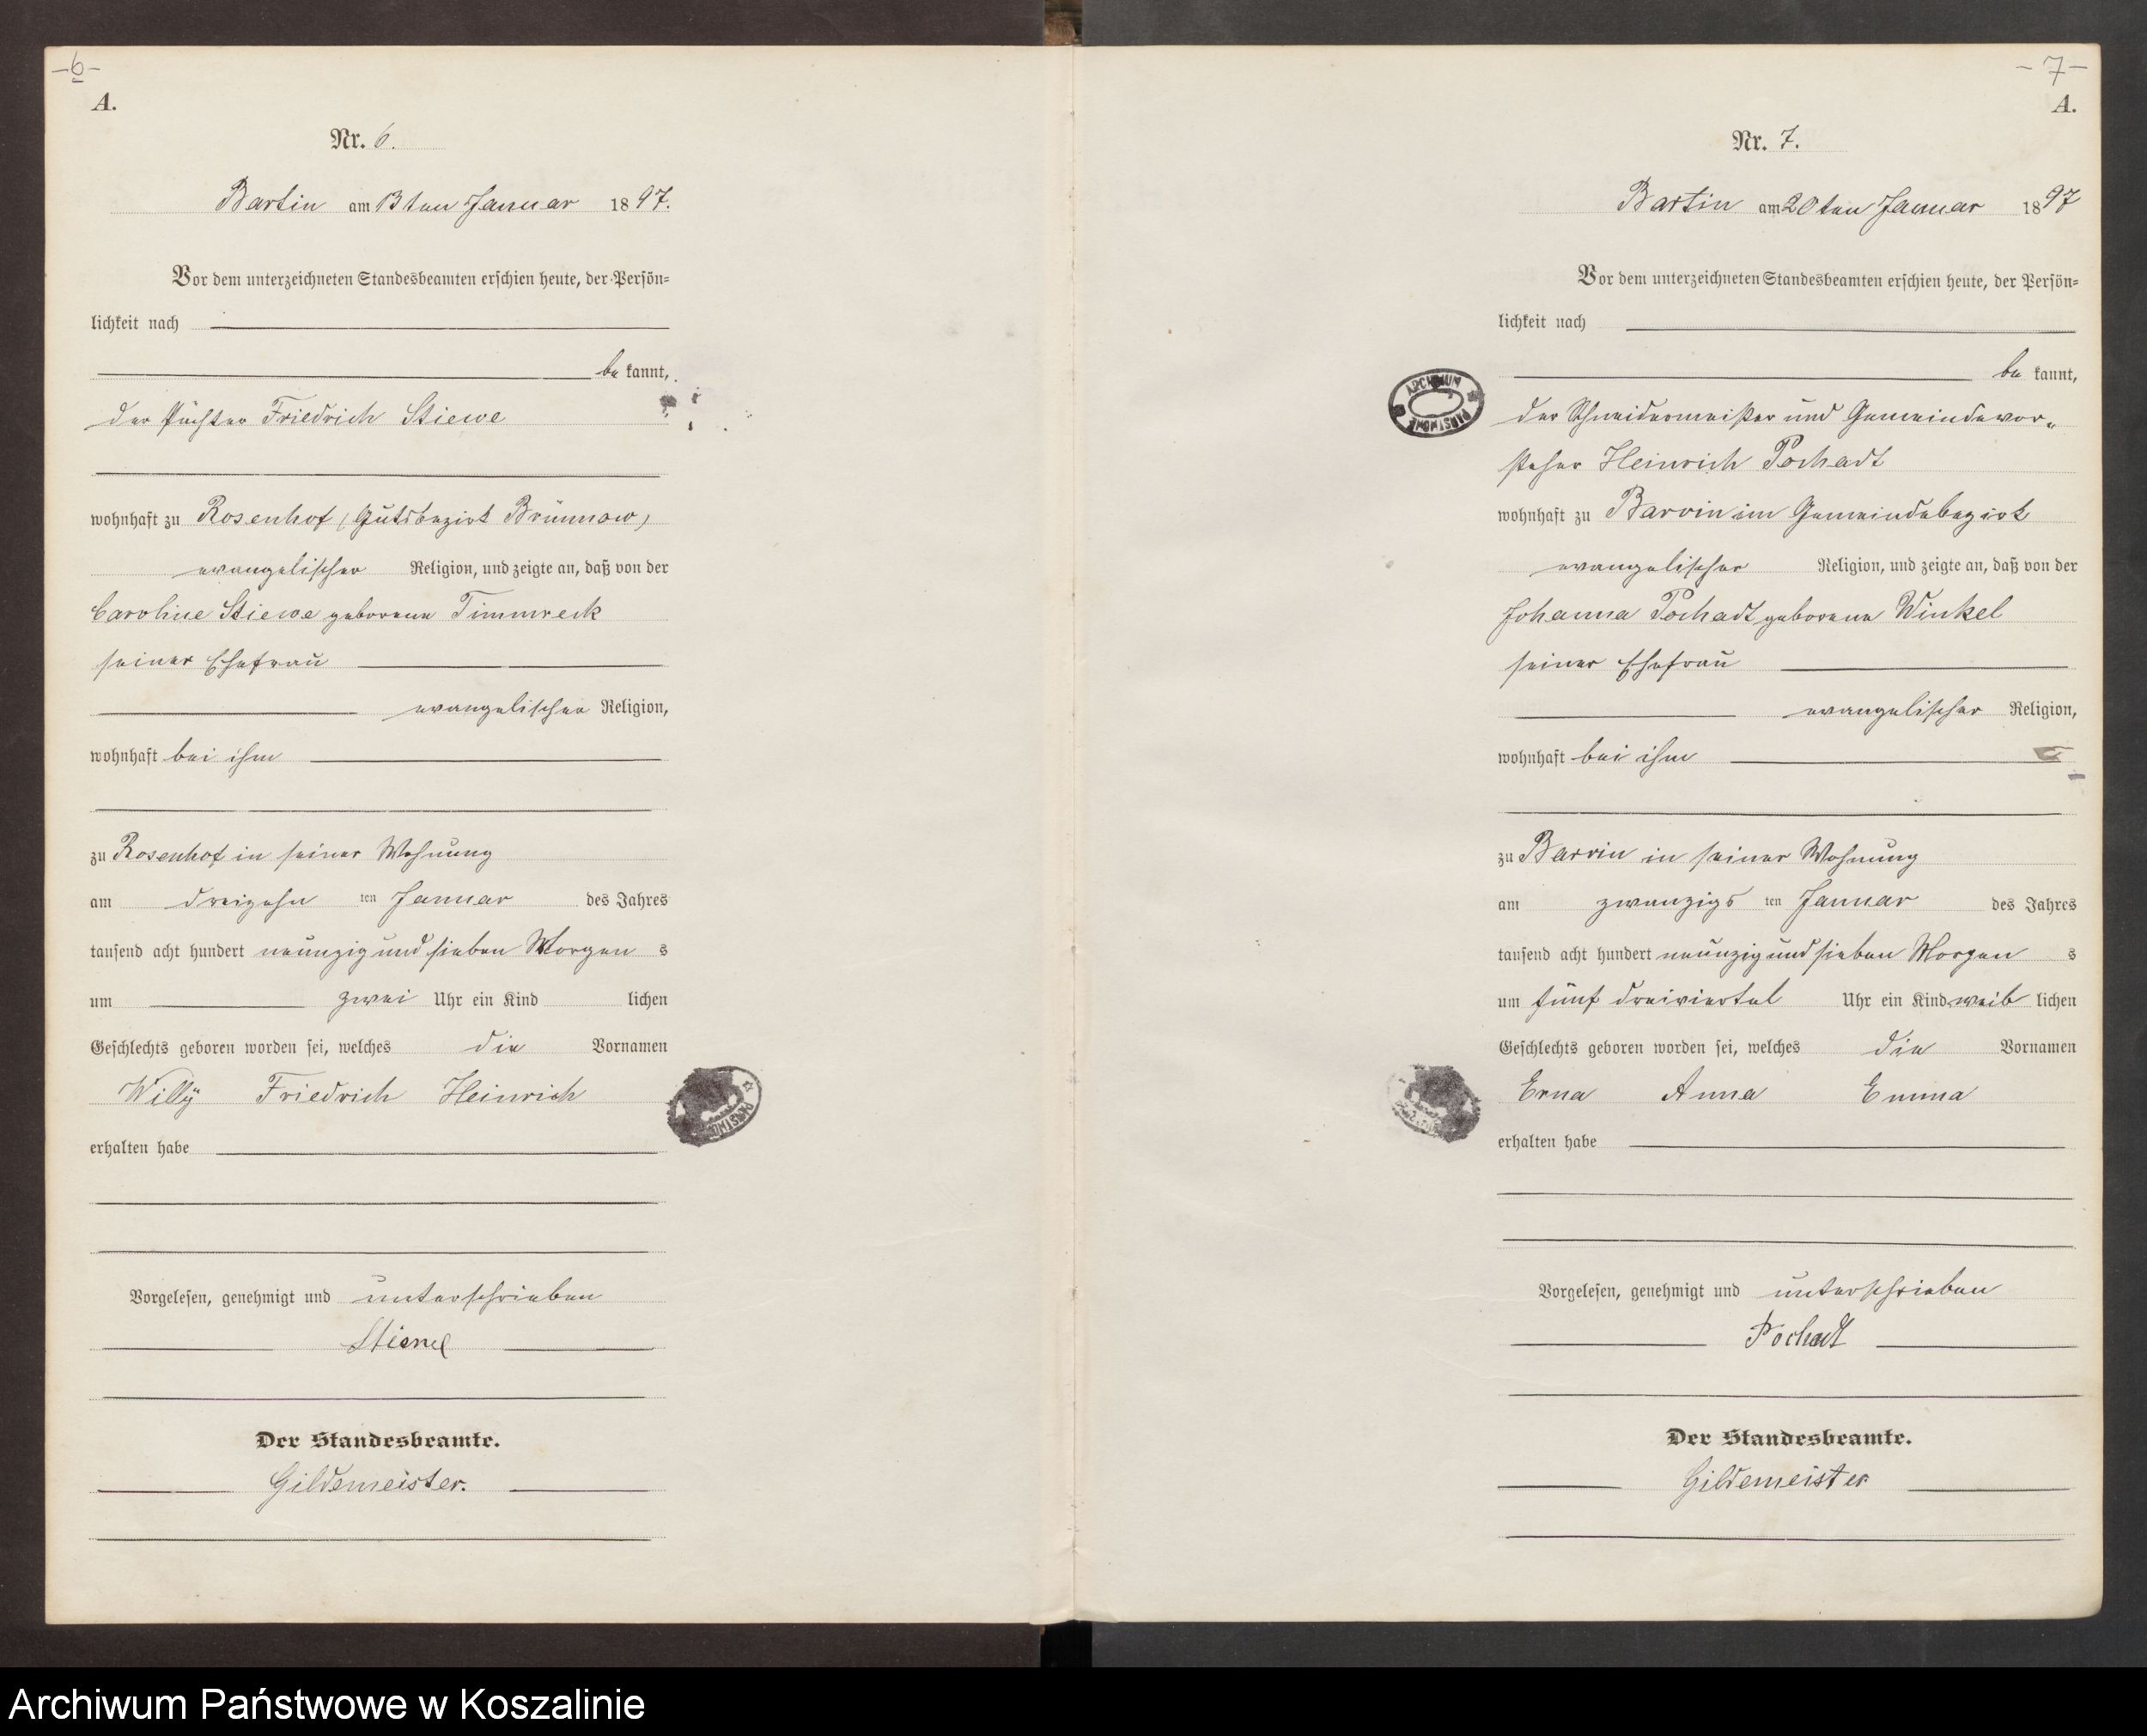 -6-
A.
Nr. 6.
Bartin am 13ten Januar 1897.
Vor dem unterzeichneten Standesbeamten erschien heute, der Persön=
lichkeit nach
be kannt,
der Pächter Friedrich Stiewe
wohnhaft zu Rosenhof (Gutsbezirk Brünnow)
evangelischer Religion, und zeigte an, daß von der
Caroline Stiewe geborene Timmreck
seiner Ehefrau
evangelischer Religion,
wohnhaft bei ihm
zu Rosenhof in seiner Wohnung
am dreizehn ten Januar des Jahres
tausend acht hundert neunzig und sieben Morgen s
um zwei Uhr ein Kind lichen
Geschlechts geboren worden sei, welches die Vornamen
Willÿ Friedrich Heinrich
erhalten habe
Vorgelesen, genehmigt und unterschrieben
Stiewe
Der Standesbeamte.
Gildemeister.
-7-
A.
Nr. 7.
Bartin am 20ten Januar 1897
Vor dem unterzeichneten Standesbeamten erschien heute, der Persön=
lichkeit nach
be kannt,
der Schneidermeister und Gemeindevor„
steher Heinrich Pochadt
wohnhaft zu Barvin im Gemeindebezirk
evangelischer Religion, und zeigte an, daß von der
Johanna Pochadt geborene Winkel
seiner Ehefrau
evangelischer Religion,
wohnhaft bei ihm
zu Barvin in seiner Wohnung
am zwanzigs ten Januar des Jahres
tausend acht hundert neunzig und sieben Morgen s
um fünf dreiviertel Uhr ein Kind weib lichen
Geschlechts geboren worden sei, welches die Vornamen
Erna Anna Emma
erhalten habe
Vorgelesen, genehmigt und unterschrieben
Pochadt
Der Standesbeamte.
Gildemeister
ARCHIWUM
Archiwum Państwowe w Koszalinie